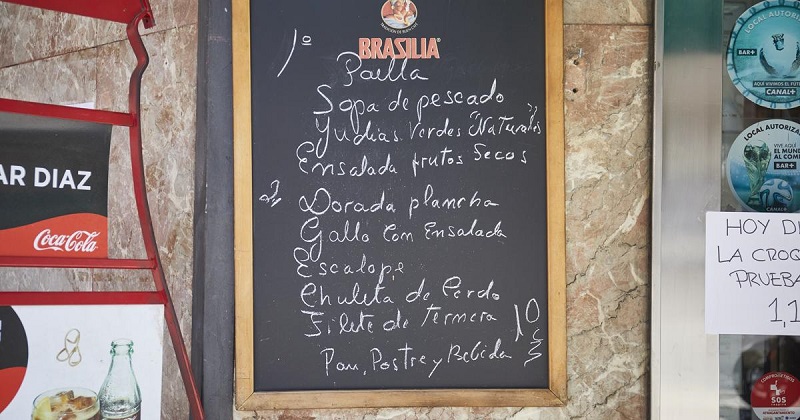 BRASILIA
1º
Paella
Sopa de pescado
Yudias verdes "Naturales"
Ensalada frutos secos
2º
Dorada plancha
Gallo con Ensalada
Escalope
Chuleta de Cerdo
Filete de Ternera
10 €
Pan, Postre y Bebida
AR DIAZ
Coca-Cola
LOCAL AUTORIZA
BAR+
AQUÍ VIVIMOS EL FÚT
CANAL+
LOCAL AUTORIZ
VIVE AQUÍ
EL MUND
AL COMP
BAR+
CANAL+
HOY D
LA CROQ
PRUEBA
1,1
SOS